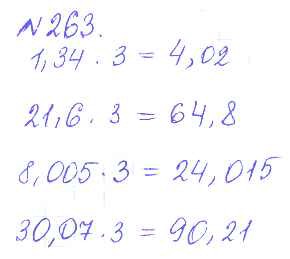 №263.
1,34 · 3 = 4,02
21,6 · 3 = 64,8
8,005 · 3 = 24,015
30,07 · 3 = 90,21